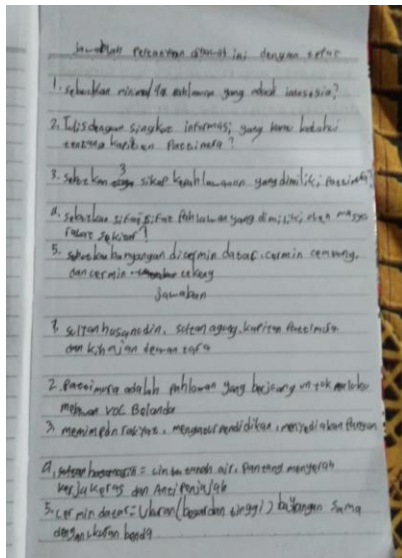 Jawablah Pertanyaan dibawah ini dengan tepat
1. sebutkan minimal pahlawan yang indonesia?
2. Tulis dengan singkat informasi yang kamu ketahui
tentang kapiten Pattimura?
3. sebutkan 3 sikap kepahlawanan yang dimiliki Pattimura?
4. sebutkan sifat-sifat Pahlawan yang dimiliki oleh
sekitar?
5. sebutkan bayangan dicermin datar, cermin cembung,
dan cermin cekung
Jawaban
1. sultan hasanudin, sultan agung, kapitan Pattimura
dan ki hajar dewantara
2. Pattimura adalah pahlawan yang berjuang untok
melawan VOC Belanda
3. memimpin rakyat, mengatur pendidikan, menyediakan Pangan
4. = cinta tanah air, Pantang menyerah
kerja keras dan Anti Penjajah
5. cermin datar = Ukuran (besar dan tinggi) bayangan sama
dengan ukuran benda